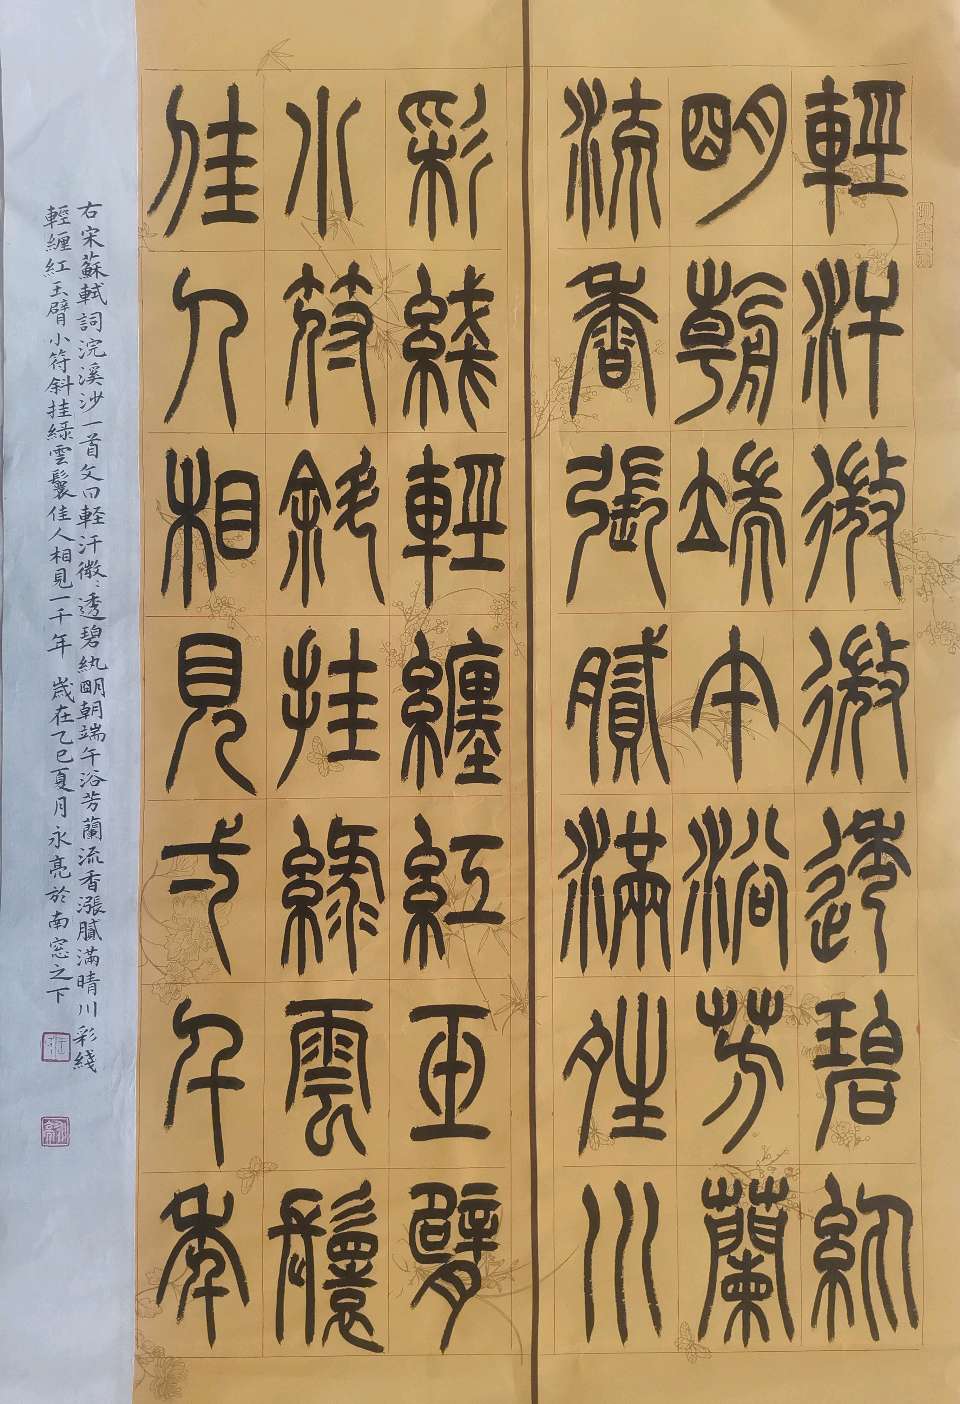 輕汗微微透碧紈
明朝端午浴芳蘭
流香張膩滿姓川
彩綫輕纏紅玉臂
小符斜挂綠雲鬟
佳人相見弌千年
右宋蘇軾詞浣溪沙一首文曰輕汗微〻透碧紈朙朝端午浴芳蘭流香漲膩滿晴川彩綫
輕纏紅玉臂小符斜挂綠雲鬟佳人相見一千年 歲在乙巳夏月永亮於南窓之下